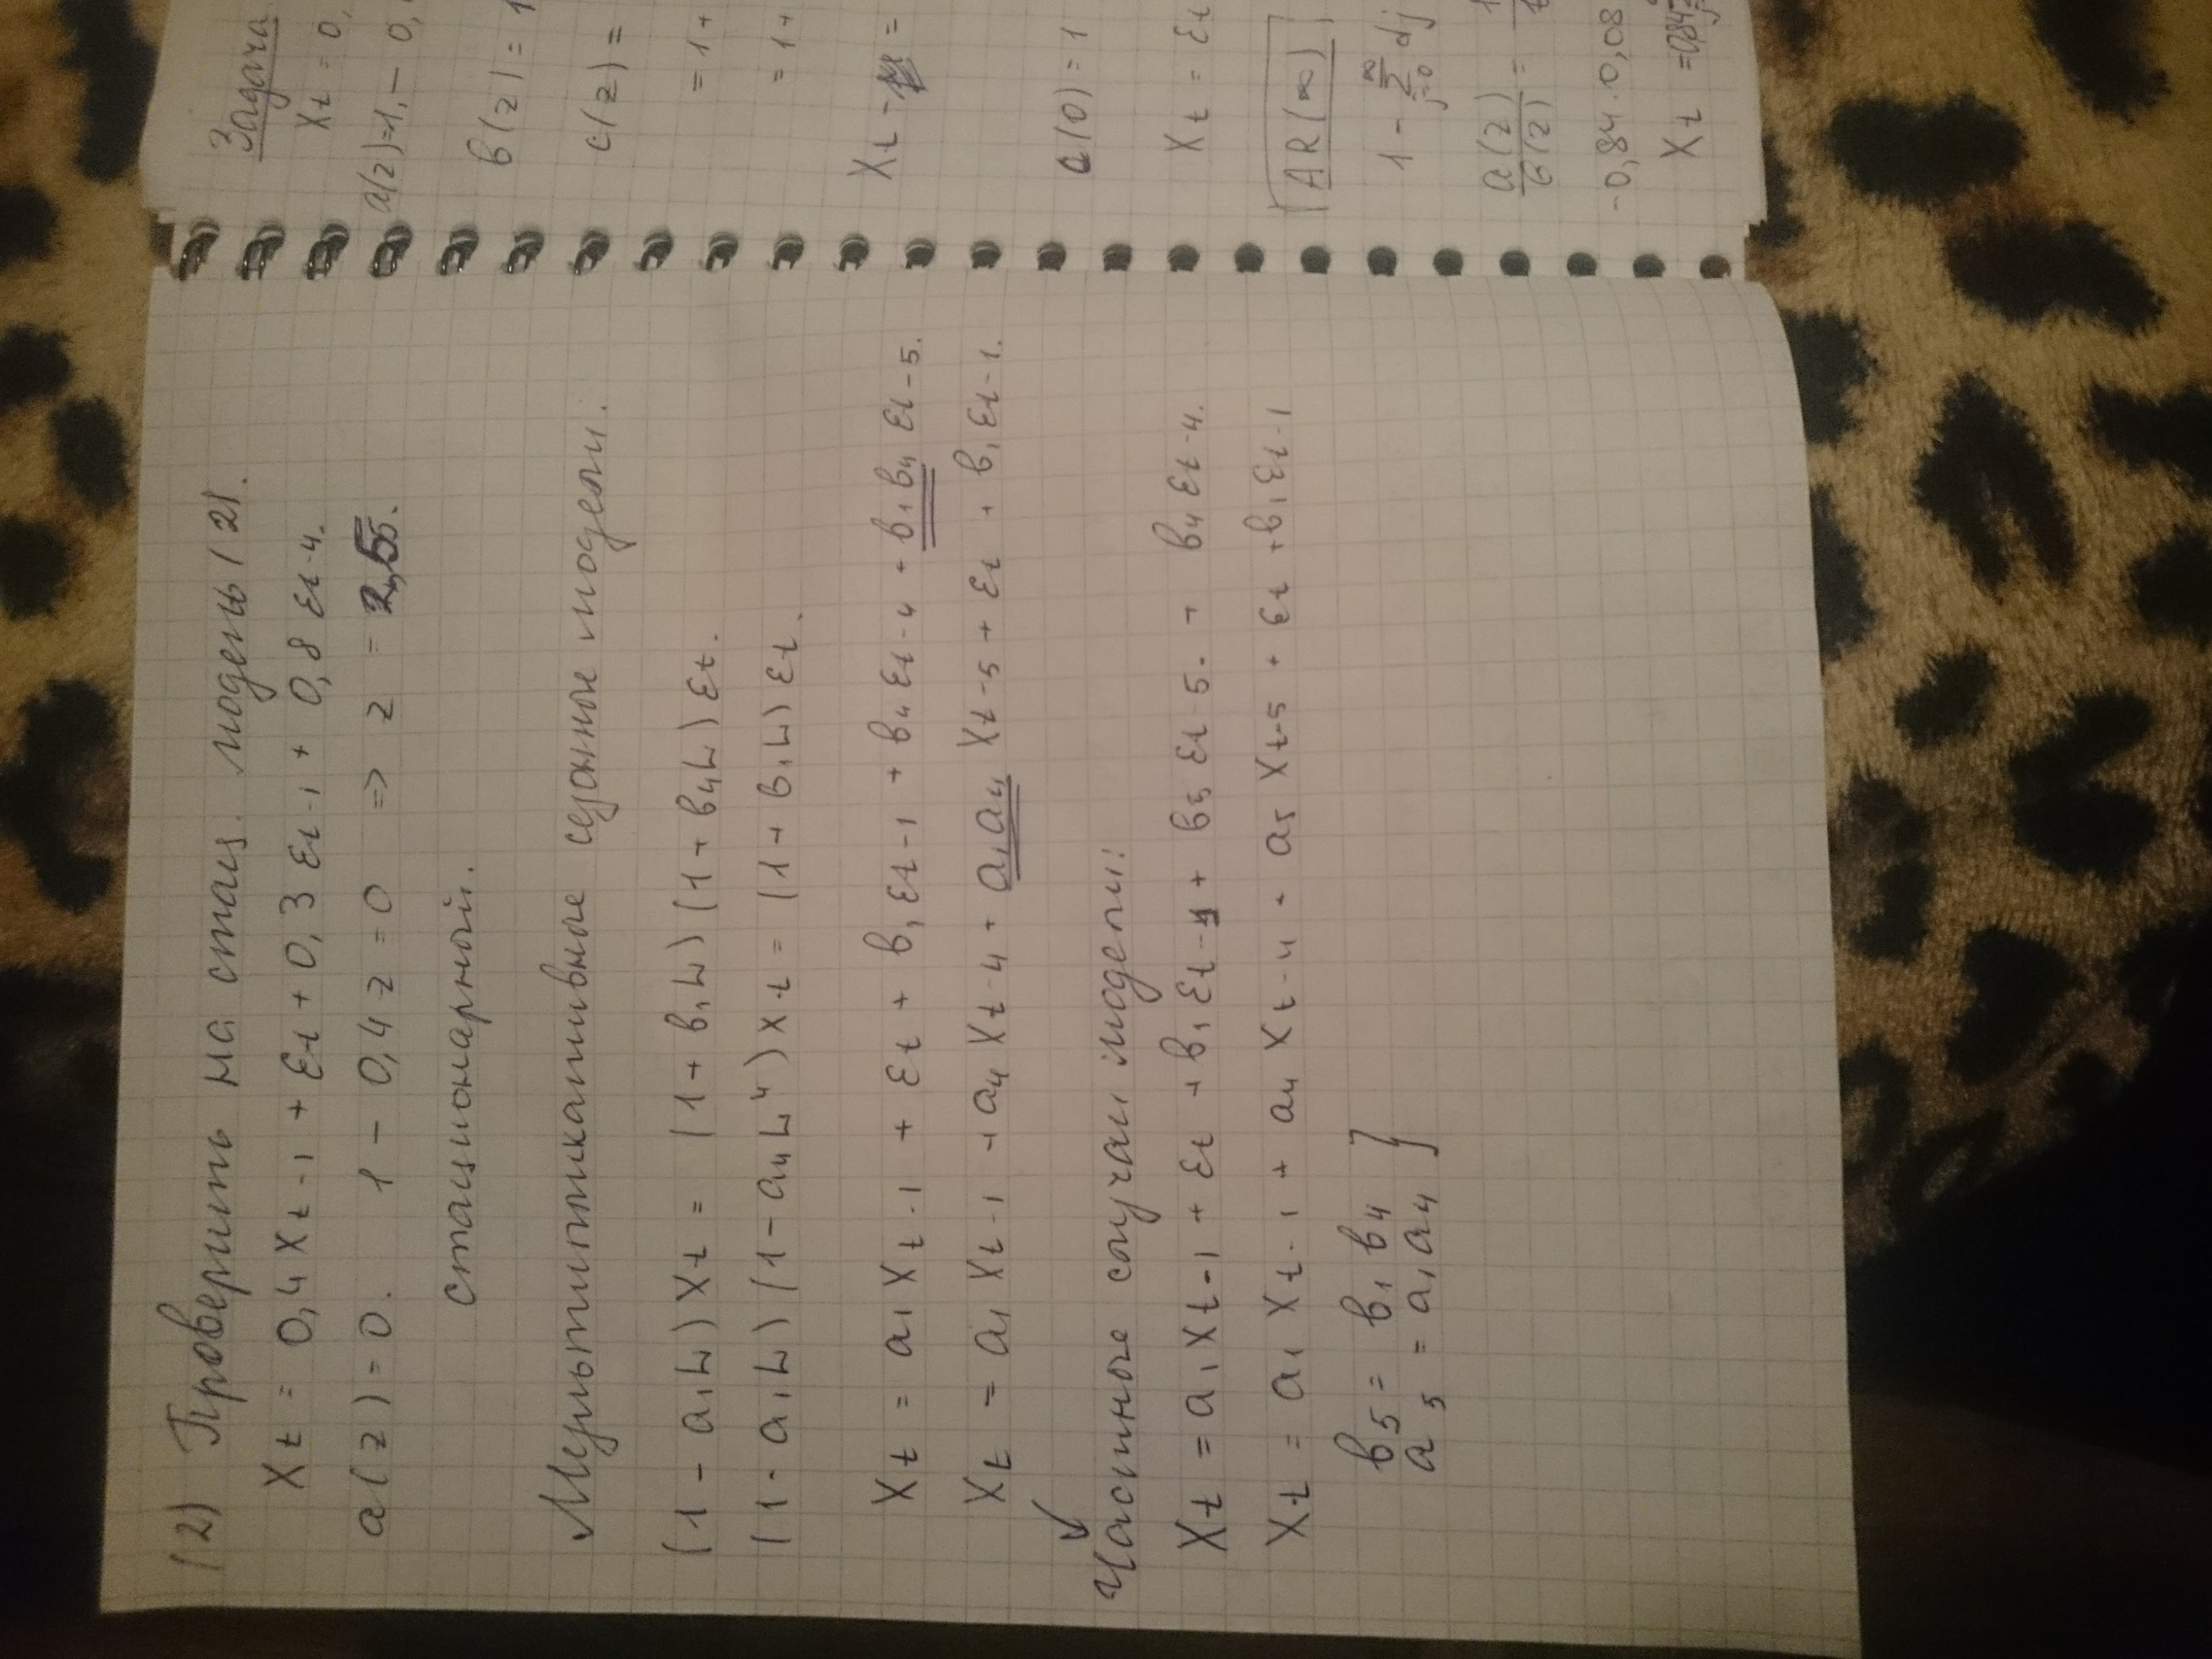 (2) Проверить на стац. модель (2).
Xt = 0,4 Xt-1 + εt + 0,3 εt-1 + 0,8 εt-4.
a(z) = 0. 1 - 0,4z = 0 => z = 2,5.
стационарный.
Мультипликативные сезонные модели.
(1 - a1L) Xt = (1 + b1L)(1 + b4L) εt.
(1 - a1L)(1 - a4L⁴) Xt = (1 + b1L) εt.
Xt = a1 Xt-1 + εt + b1 εt-1 + b4 εt-4 + b1b4 εt-5.
Xt = a1 Xt-1 + a4 Xt-4 + a1a4 Xt-5 + εt + b1 εt-1.
Частные случаи модели:
Xt = a1 Xt-1 + εt + b1 εt-1 + b5 εt-5. + b4 εt-4.
Xt = a1 Xt-1 + a4 Xt-4 + a5 Xt-5 + εt + b1 εt-1
b5 = b1 b4
a5 = a1 a4 ]
Задача
Xt = 0,
a(z)=1,- 0,
b(z) = 1
c(z) =
= 1+
= 1+
Xt -
a(0) = 1
Xt = εt
AR(∞)
1 - ∞ Σ j=0 dj
a(z) / b(z) =
-0,84·0,08
Xt = 0,84